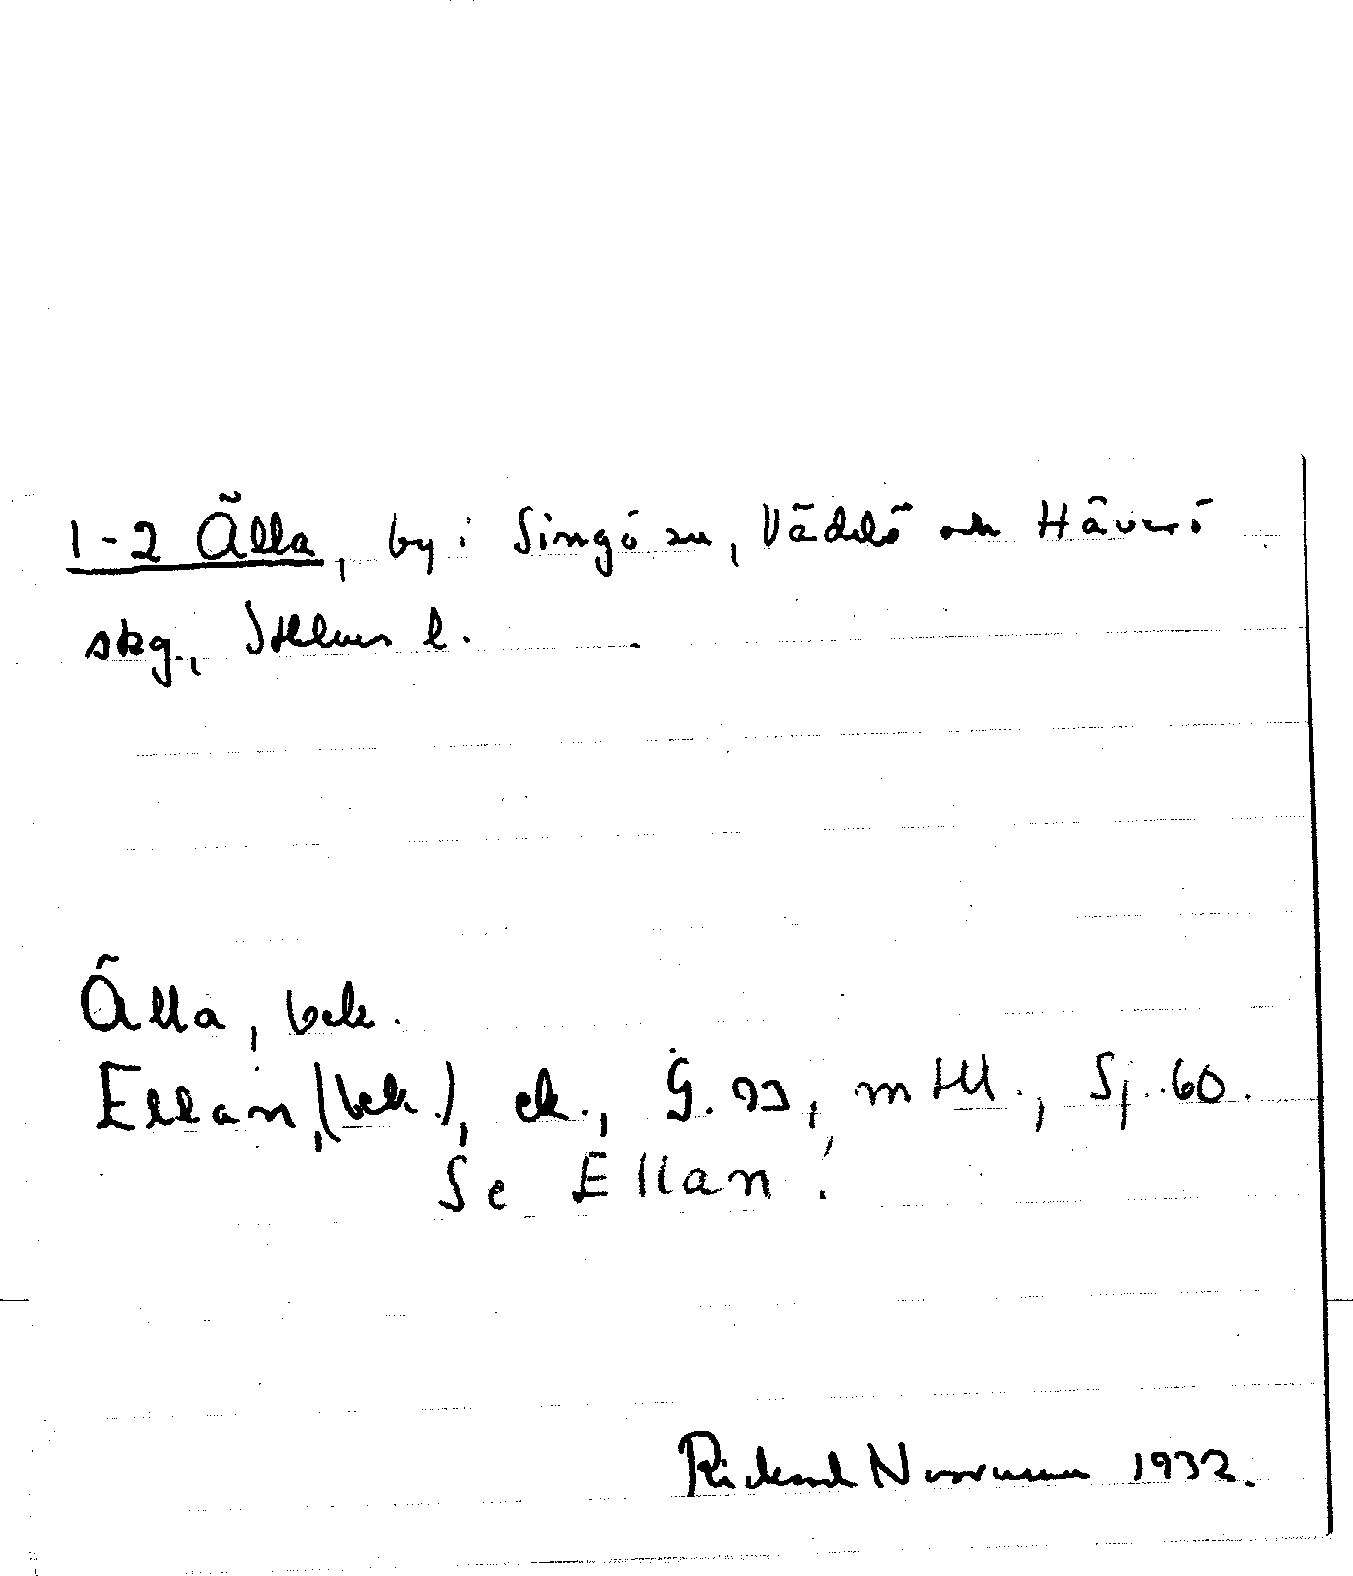 1-2 Älla, by i Singö sn, Väddö och Häverö
skg., Sthlms l.
Älla, bek.
Ellan, (bek.), ek., G. 93, mtl., Sj. 60.
Se Ellan!
Rickard 1932.